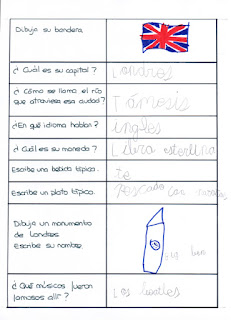 Dibuja su bandera.
¿Cuál es su capital?
Londres
¿Cómo se llama el río
que atraviesa esa ciudad?
Támesis
¿En qué idioma hablan?
ingles
¿Cuál es su moneda?
Libra esterlina
Escribe una bebida típica.
te
Escribe un plato típico.
Pescado con
Dibuja un monumento
de Londres
Escribe su nombre
¿Qué músicos fueron
famosos allí?
Los beatles